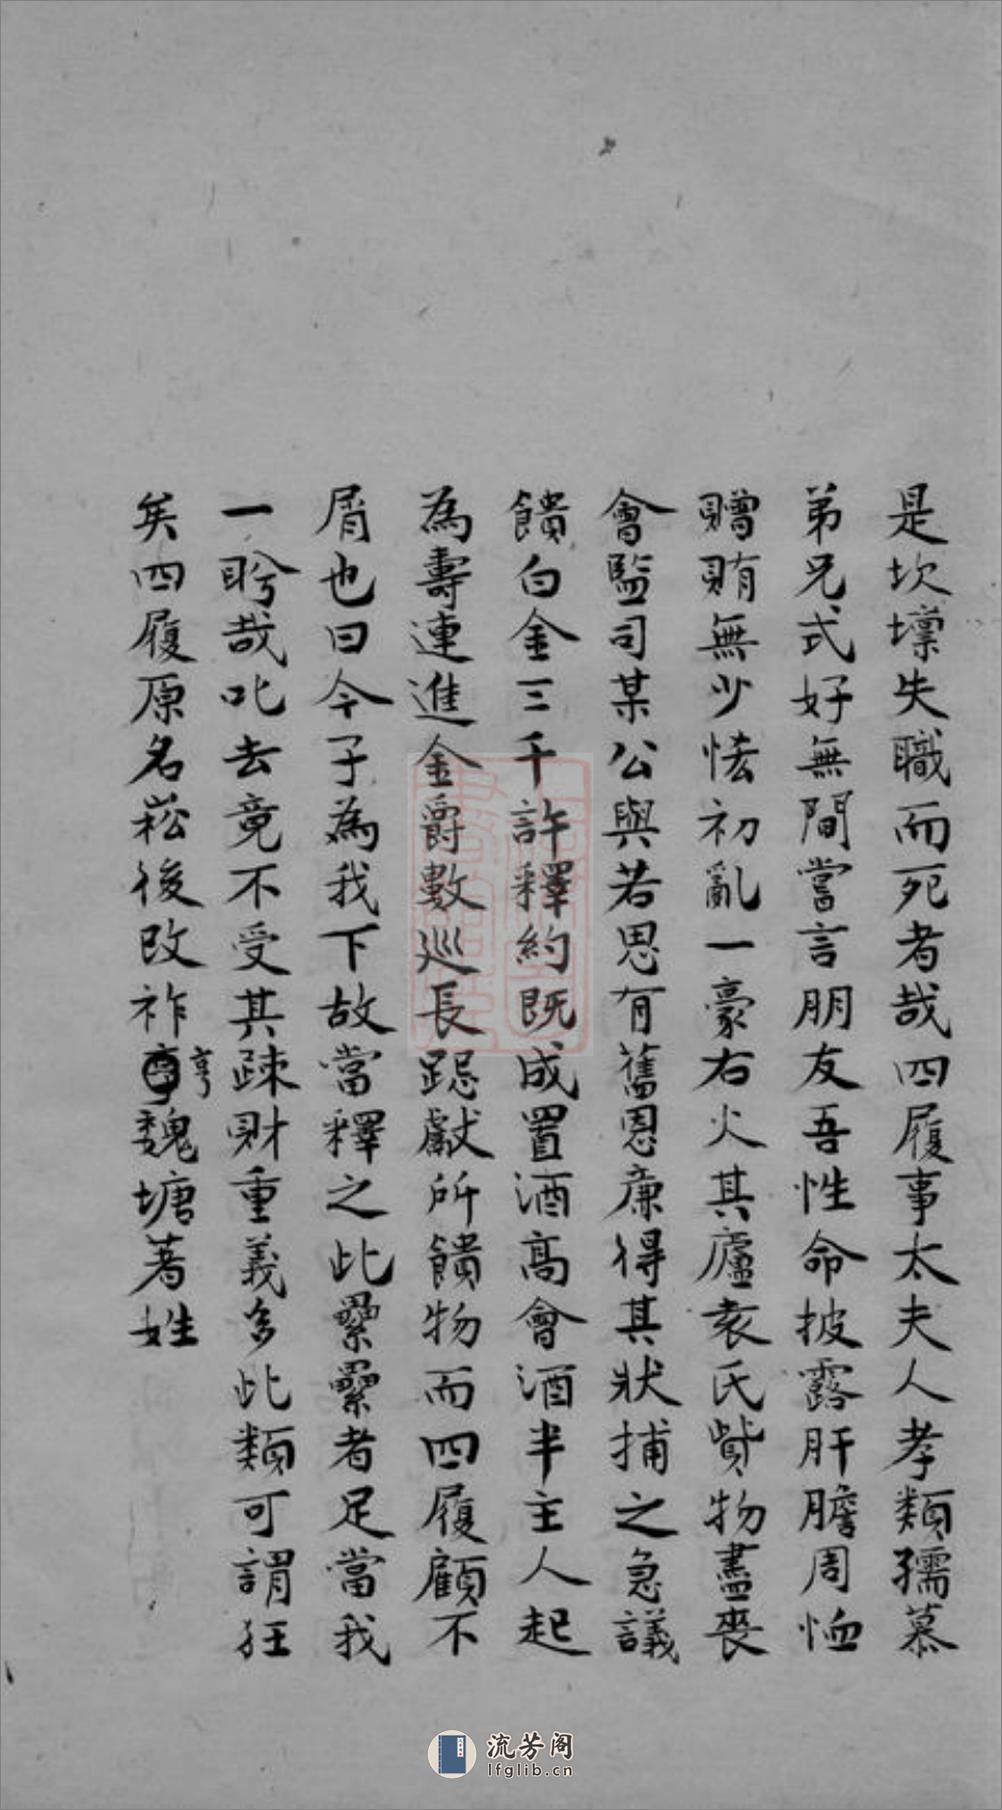 是坎壈失職而死者哉四履事太夫人孝類孺慕
弟兄式好無間嘗言朋友吾性命披露肝膽周恤
贈賄無少恡初亂一豪右火其廬袁氏貲物盡喪
會監司某公與若思有舊恩廉得其狀捕之急議
饋白金三千許釋約既成置酒高會酒半主人起
為壽連進金爵數巡長跽獻所饋物而四履顧不
屑也曰今子為我下故當釋之此纍纍者足當我
一盻哉叱去竟不受其疎財重義多此類可謂狂
矣四履原名崧後改祚亨魏塘著姓
流芳阁
lfglib.cn